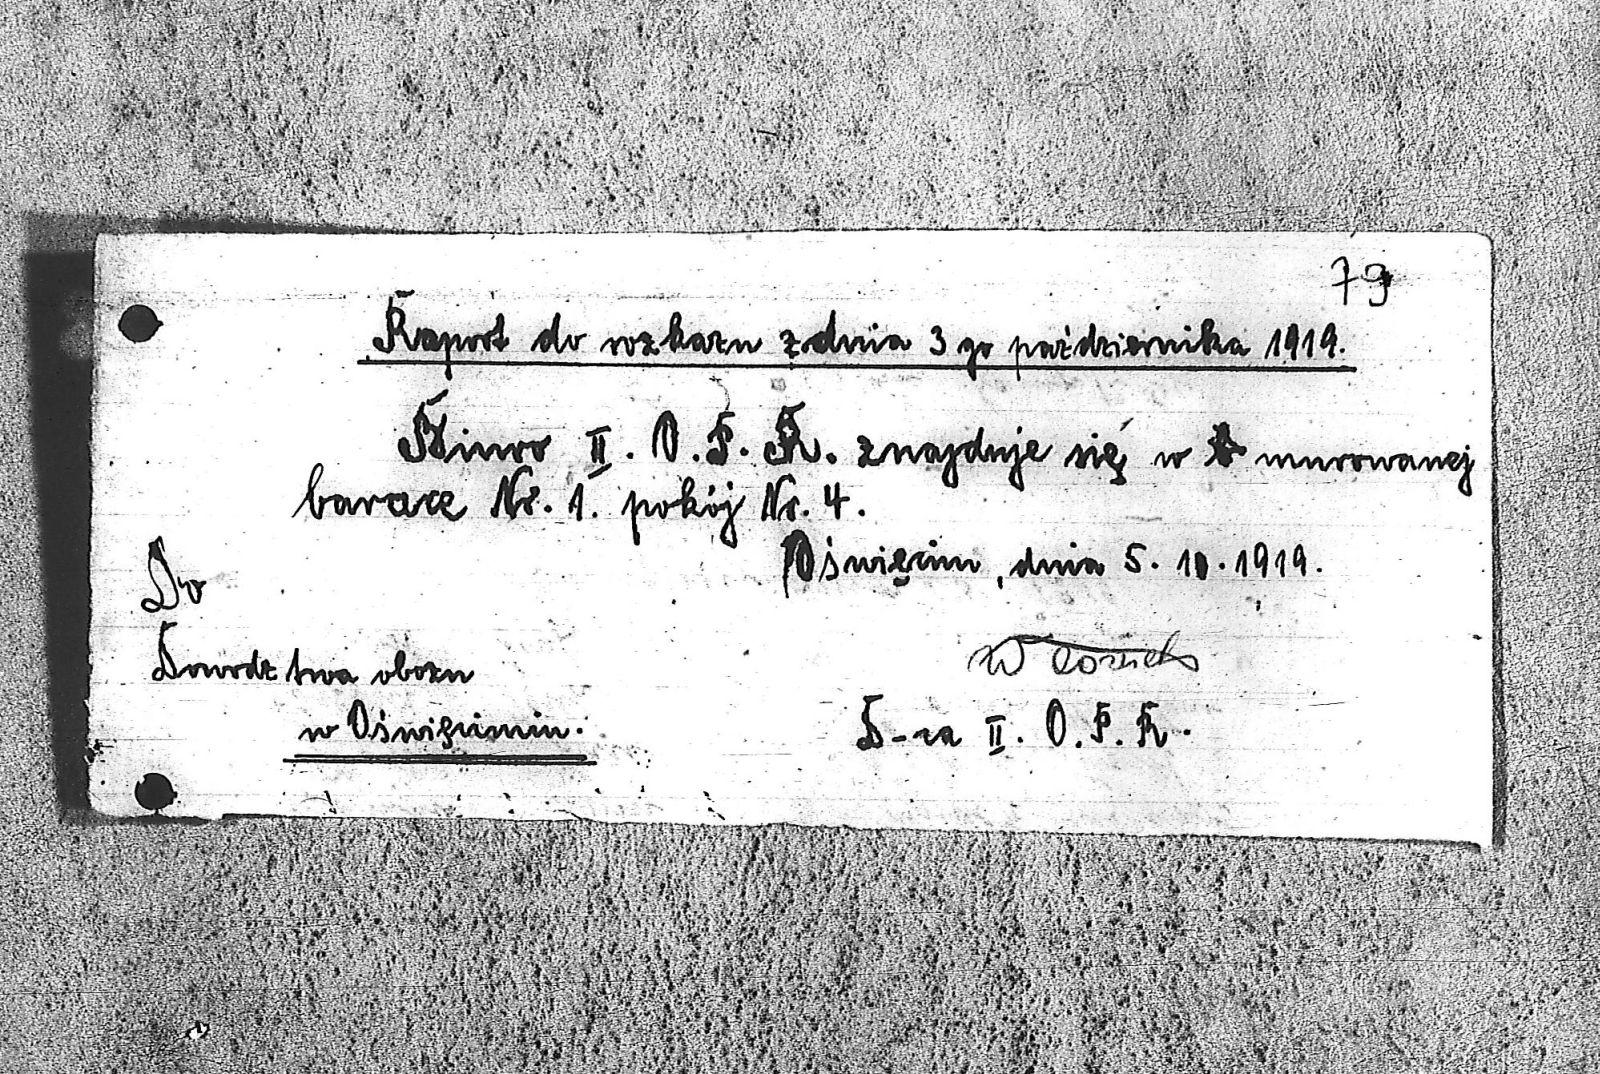 79
Raport do rozkazu z dnia 3 go października 1919.
Biuro II. O.P.K. znajduje się w murowanej
barace Nr. 1. pokój Nr. 4.
Oświęcim, dnia 5. 10. 1919.
Do
Dowództwa obozu
w Oświęcimiu.
D-ca II. O.P.K.